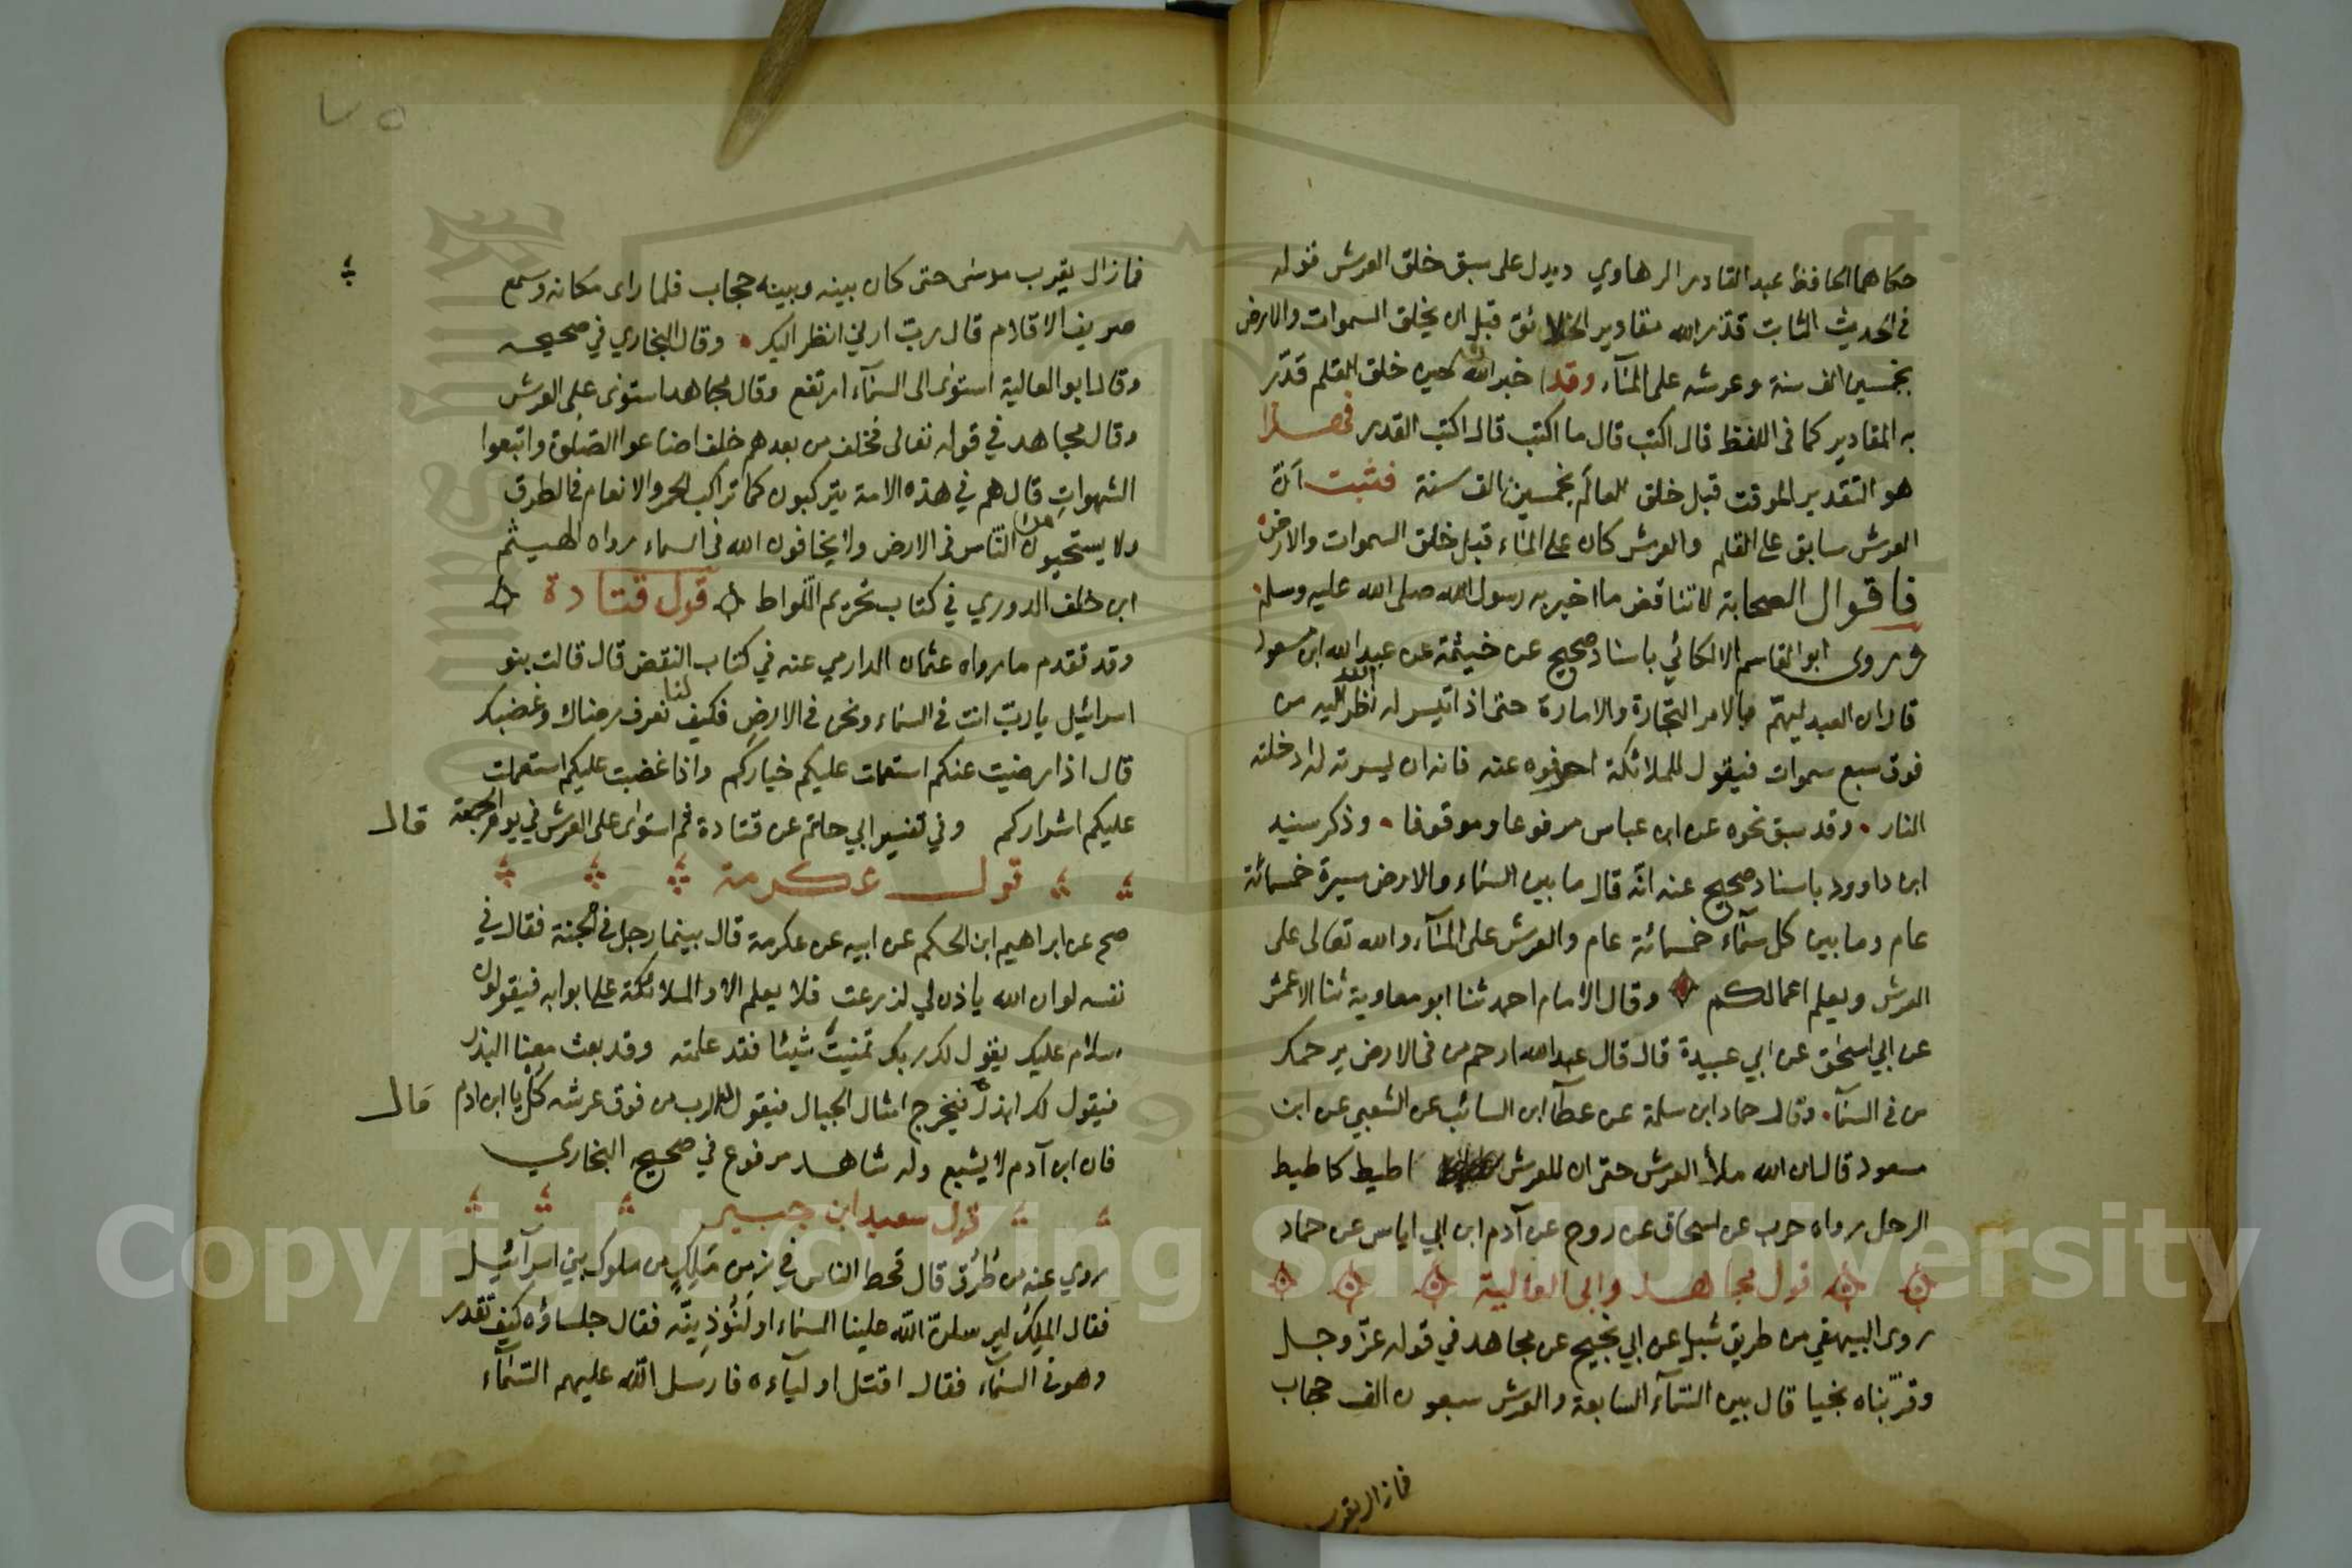 حكاهما الحافظ عبد القادر الرهاوي ويدل على سبق خلق العرش قوله
في الحديث الثابت قدر الله مقادير الخلائق قبل ان يخلق السموات والارض
بخمسين الف سنة وعرشه على المآء وقد اخبر انه حين خلق القلم قدّر
به المقادير كما في اللفظ قال اكتب قال ما اكتب قال اكتب القدر فهذا
هو التقدير الموقت قبل خلق العالم بخمسين الف سنة فثبت أنّ
العرش سابق على القلم والعرش كان على الماء قبل خلق السموات والارض
فاقوال الصحابة لا تناقض ما اخبر به رسول الله صلى الله عليه وسلم
وروى ابو القاسم الالكائي باسناد صحيح عن خيثمة عن عبد الله ابن مسعود
قال ان العبد ليهمّ بالامر التجارة والامارة حتى اذا تيسر له نظر الله اليه من
فوق سبع سموات فيقول للملائكة اصرفوه عنه فانه ان يسرته له ادخلته
النار . وقد سبق نحوه عن ابن عباس مرفوعا وموقوفا . وذكر سنيد
ابن داوود باسناد صحيح عنه انّه قال ما بين السماء والارض مسيرة خمسمائة
عام وما بين كل سمآء خمسمائة عام والعرش على المآء والله تعالى على
العرش ويعلم اعمالكم وقال الامام احمد ثنا ابو معاوية ثنا الاعمش
عن ابي اسحٰق عن ابي عبيدة قال قال عبد الله ارحم من في الارض يرحمك
من في السمآء . وقال حماد ابن سلمة عن عطآ ابن السائب عن الشعبي عن ابن
مسعود قال ان الله ملأ العرش حتى ان للعرش اطيط كاطيط
الرحل رواه حرب عن اسحاق عن روح عن آدم ابن ابي اياس عن حماد
قول مجاهد وابي العالية
روى البيهقي من طريق شبل عن ابي نجيح عن مجاهد في قوله عزّ وجل
وقرّبناه نجيا قال بين السمآء السابعة والعرش سبعون الف حجاب
فما زال يقرب
فما زال يقرب موسٰى حتى كان بينه وبينه حجاب فلما راى مكانه وسمع
صريف الاقلام قال ربّ ارني انظر اليك . وقال البخاري في صحيحه
وقال ابو العالية استوٰى الى السمآء ارتفع وقال مجاهد استوٰى على العرش
وقال مجاهد في قوله تعالى فخلف من بعدهم خلف اضاعوا الصّلوة واتبعوا
الشهوات قال هم في هذه الامة يتركبون كما تراكب الحمر والانعام في الطرق
ولا يستحيون من النّاس في الارض ولا يخافون الله في السماء رواه الهيثم
ابن خلف الدوري في كتاب تحريم اللّواط قول قتادة
وقد تقدم ما رواه عثمان الدارمي عنه في كتاب النقض قال قالت بنو
اسرائيل يا ربّ انت في السّماء ونحن في الارض فكيف لنا نعرف رضاك وغضبك
قال اذا رضيت عنكم استعملت عليكم خياركم واذا غضبت عليكم استعملت
عليكم اشراركم وفي تفسير ابي حاتم عن قتادة ثم استوٰى على العرش في يوم الجمعة قال
قول عكرمة
صح عن ابراهيم ابن الحكم عن ابيه عن عكرمة قال بينما رجل في الجنة فقال في
نفسه لو ان الله ياذن لي لزرعت فلا يعلم الا والملائكة على ابوابه فيقولون
سلام عليك يقول لك ربك تمنيت شيئا فقد علمته وقد بعث معنا البذر
فيقول لك ابذر فيخرج امثال الجبال فيقول له الرب من فوق عرشه كُل يا ابن ادم قال
فان ابن آدم لا يشبع وله شاهد مرفوع في صحيح البخاري
قول سعيد ابن جبير
روي عنه من طُرُق قال قحط الناس في زمن مَلِكٍ من ملوك بني اسرآئيل
فقال الملِك ليرسلنّ الله علينا السّماء او لَنُؤذِينّه فقال جلساؤه كيف تقدر
وهو في السمآء فقال اقتل اوليآءه فارسل الله عليهم السّمآء